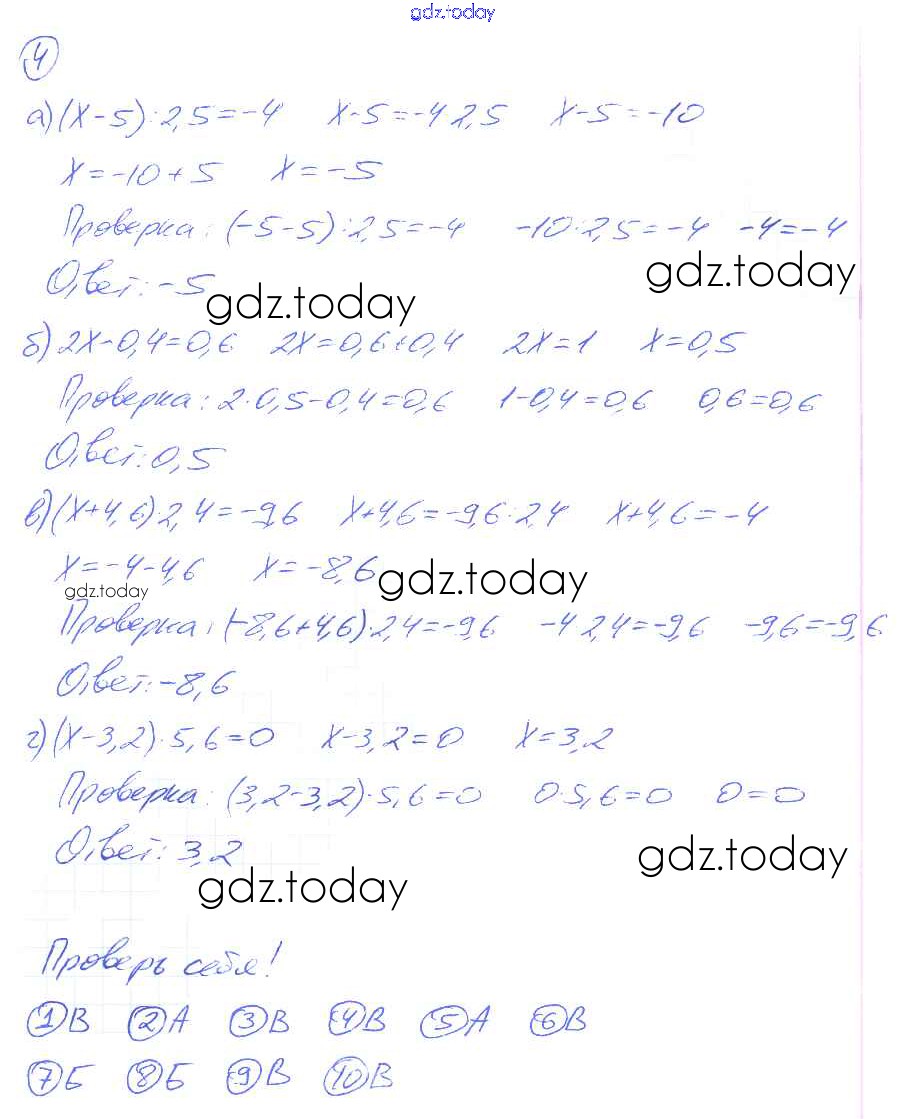 gdz.today
4
а) (x-5):2,5=-4 x-5=-4·2,5 x-5=-10
x=-10+5 x=-5
Проверка: (-5-5):2,5=-4 -10:2,5=-4 -4=-4
gdz.today
Ответ: -5
gdz.today
б) 2x-0,4=0,6 2x=0,6+0,4 2x=1 x=0,5
Проверка: 2·0,5-0,4=0,6 1-0,4=0,6 0,6=0,6
Ответ: 0,5
в) (x+4,6)·2,4=-9,6 x+4,6=-9,6:2,4 x+4,6=-4
x=-4-4,6 x=-8,6
gdz.today
gdz.today
Проверка: (-8,6+4,6)·2,4=-9,6 -4·2,4=-9,6 -9,6=-9,6
Ответ: -8,6
г) (x-3,2)·5,6=0 x-3,2=0 x=3,2
Проверка: (3,2-3,2)·5,6=0 0·5,6=0 0=0
Ответ: 3,2
gdz.today
gdz.today
Проверь себя!
1 В 2 А 3 В 4 В 5 А 6 В
7 Б 8 Б 9 В 10 В